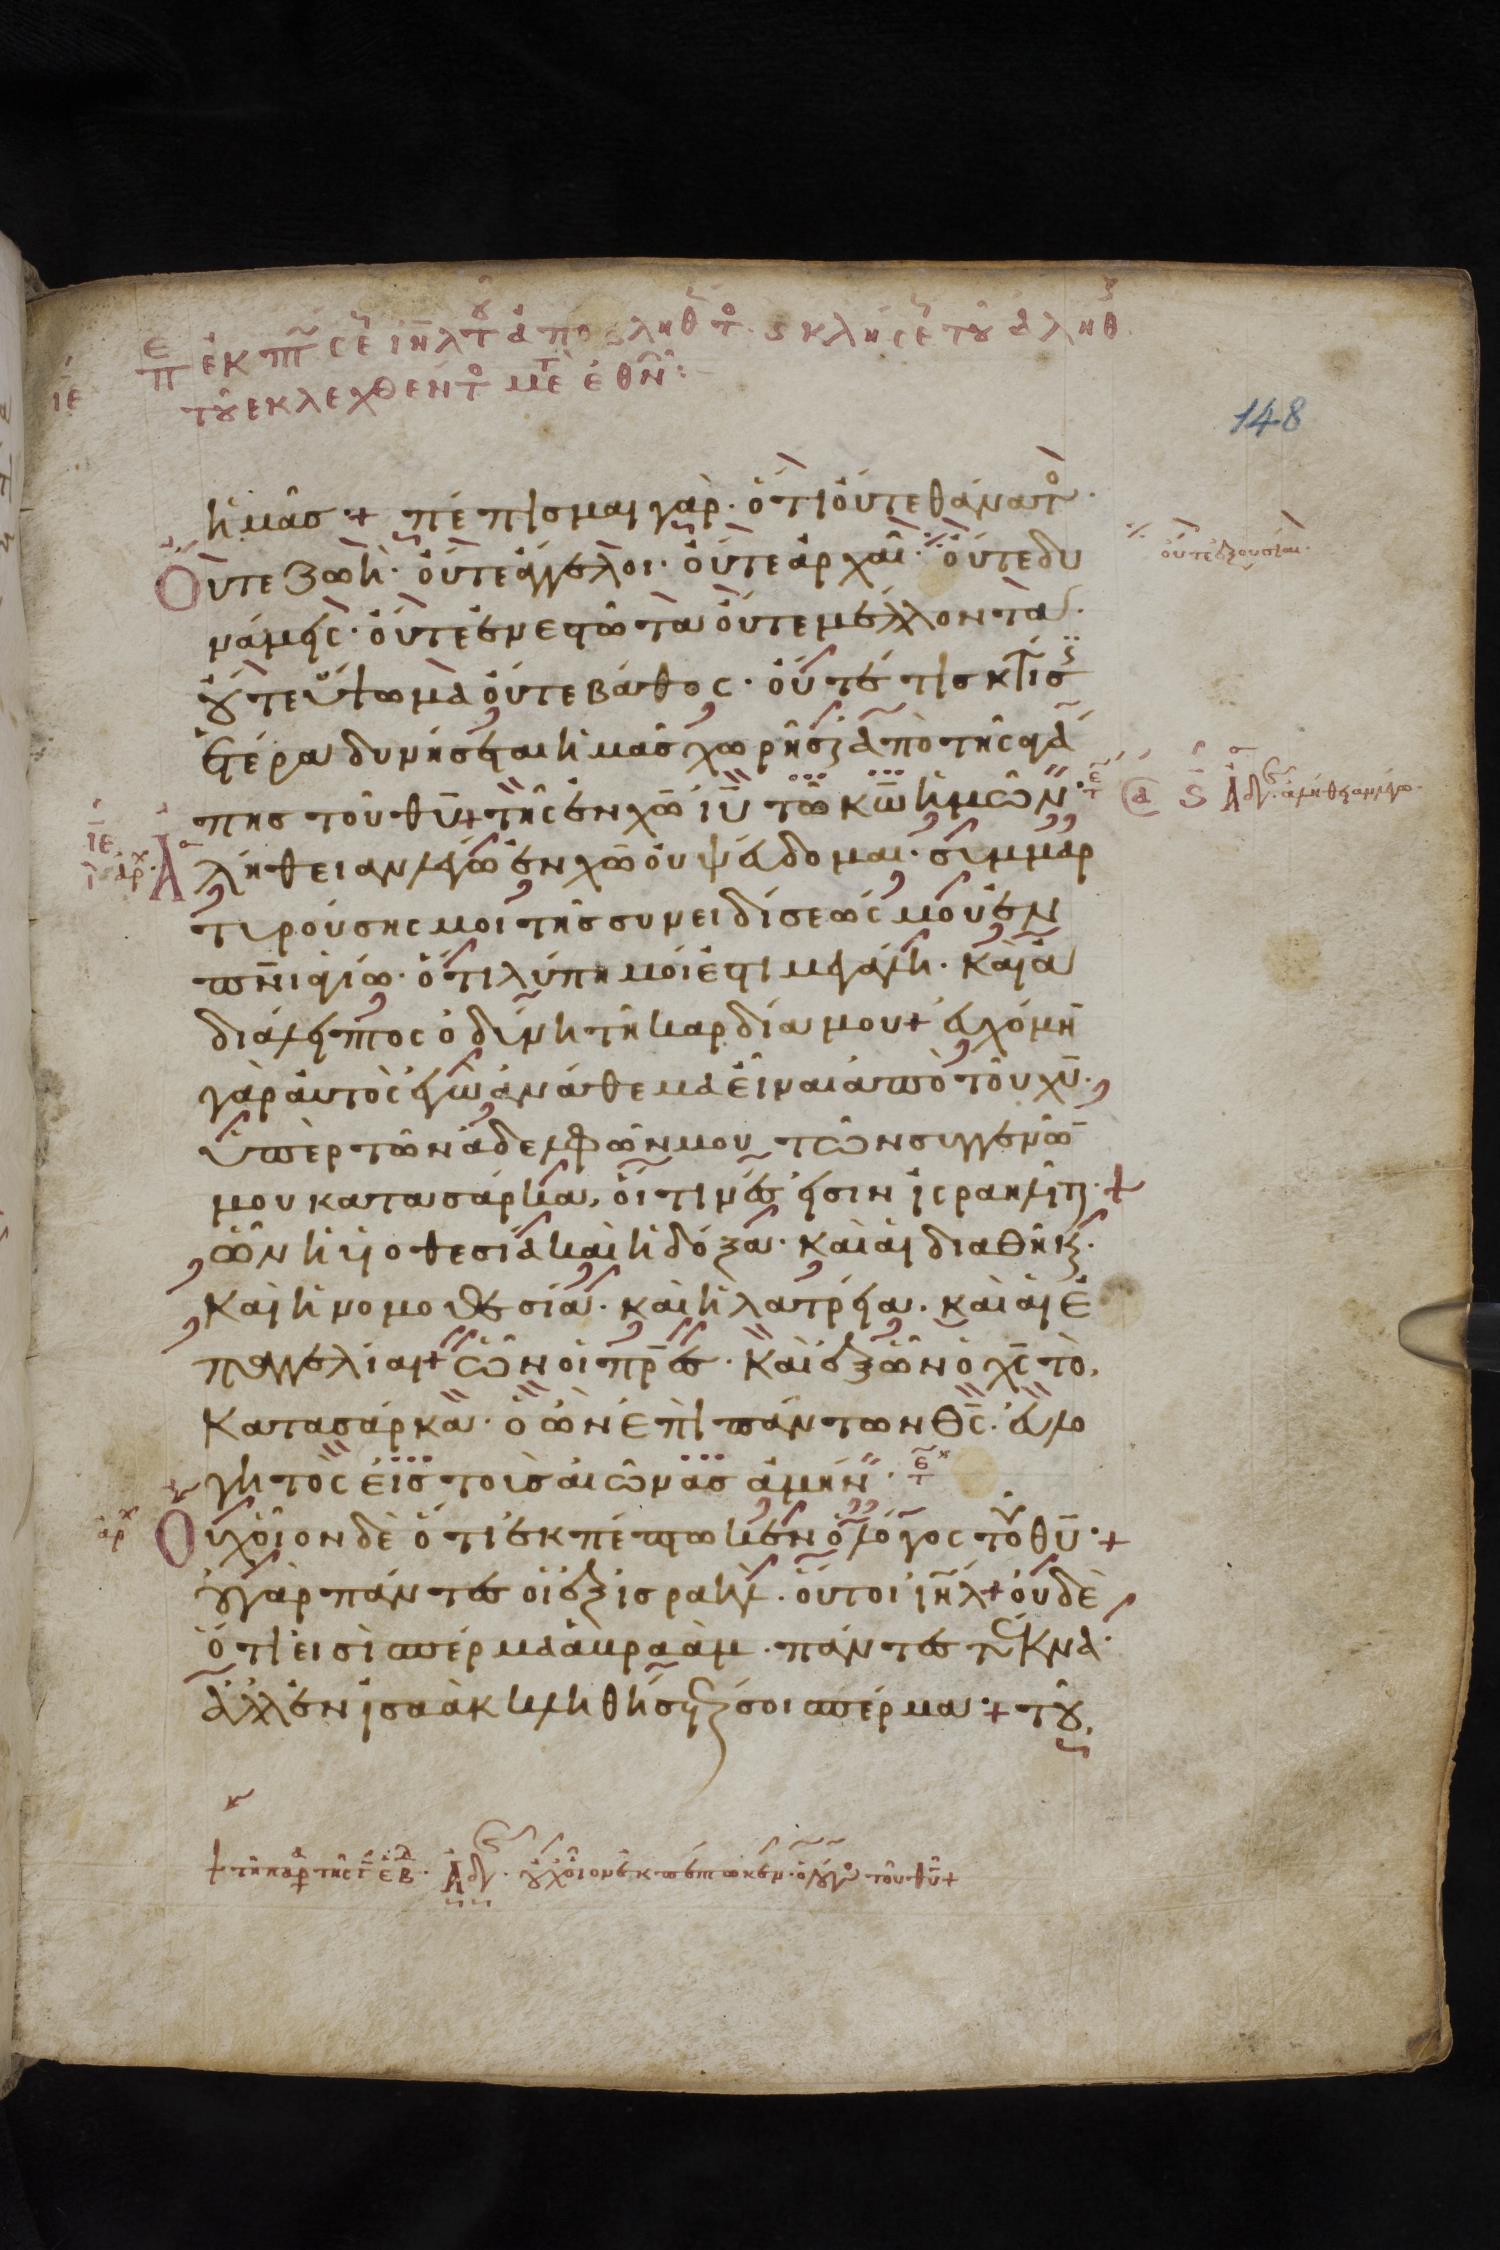 ἐκπτώσε ἰηλ τοῦ ἀποβληθτο. κλήσε τοῦ ἀληθ
ιε
τοῦ εκλεχθέντο μτ ἐθν:
148
ἡμᾶσ + πέπισμαι γὰρ· ὅτι οὔτε θάνατο·
Οὔτε ζωὴ· οὔτε ἄγγελοι· οὔτε ἀρχαὶ· οὔτε δυ
οὔτε ἐξουσίαι·
νάμεις· οὔτε ἐνεστῶτα οὔτε μέλλοντα·
οὔτε ὕψωμα οὔτε βάθος· οὔτέ τισ κτίσις
ἑτέρα δυνήσεται ἡμᾶσ χωρῆσαι ἀπὸ τῆς ἀγά
πησ τοῦ θῦ + τῆς ἐν χω ιυ τῶ κω ἡμῶν·
ιε
Ἀλήθειαν λέγω ἐν χω οὐ ψεύδομαι· σιμμαρ
τιρούσης μοι τῆσ συνειδίσεώς μου ἐν
πνι ἁγίω· ὅτι λύπη μοί ἐστι μεγάλη· καὶ ἀ
διάλειπτος ὀδύνη τῆ καρδία μου + εὐχόμη
γὰρ αὐτὸς ἐγὼ ἀνάθεμα εἶναι ἀπὸ τοῦ χυ·
ὑπὲρ τῶν ἀδελφῶν μου τῶν συγγενῶ
μου κατασάρκα, οἵτινές εἰσιν ἰσραηλῖται· +
ὧν ἡ υἱοθεσία καὶ ἡ δόξα· καὶ αἱ διαθῆκαι·
Καὶ ἡ νομοθεσία· καὶ ἡ λατρεία· καὶ αἱ ἐ
παγγελίαι + ὧν οἱ πρες· καὶ ἐξ ὧν ὁ χς τὸ,
Κατασάρκα· ὁ ὢν ἐπὶ πάντων θς· εὐλο
γητὸς εἰσ τοὺσ αἰῶνασ ἀμήν·
Οὐχ οἷον δὲ ὅτι ἐκπέπτωκεν ὁ λόγος τοῦ θυ· +
οὐ γὰρ πάντες οἱ ἐξ ἰσραὴλ· οὗτοι ἰηλ + οὐδὲ
ὅτι εἰσὶ σπέρμα ἀβραὰμ· πάντες τέκνα·
ἀλλ' ἐν ἰσαὰκ κληθήσεταί σοι σπέρμα + τοῦ,
οὐχ οἷον ἐκπέπτωκεν· ὁ λόγο τοῦ θυ +